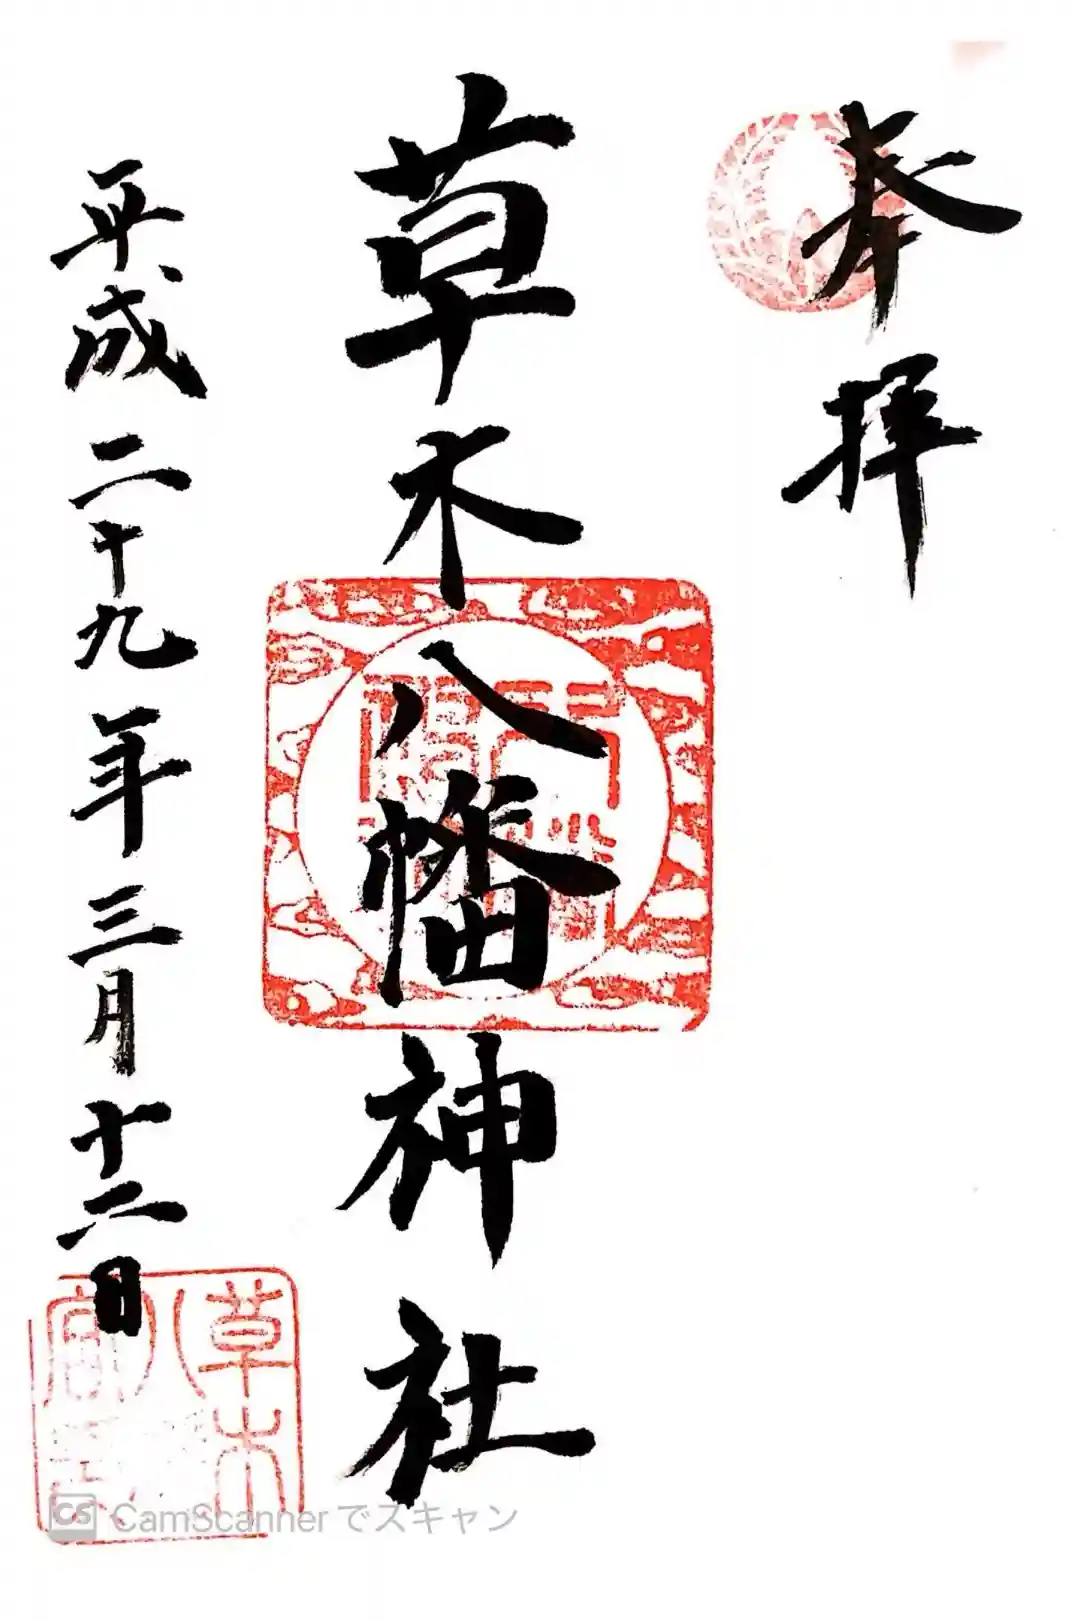 奉拝
草木八幡神社
平成二十九年三月十二日
草木八
CS CamScannerでスキャン